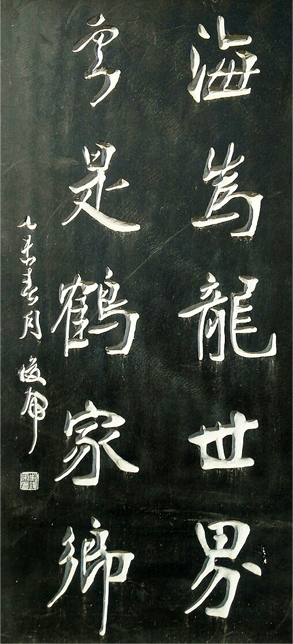 海為龍世界
雲是鶴家鄉
乙未春月